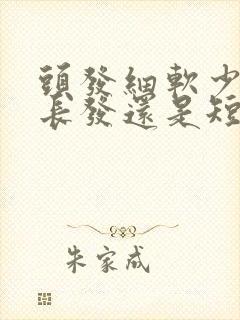 頭發細軟少
長發還是短
朱家成